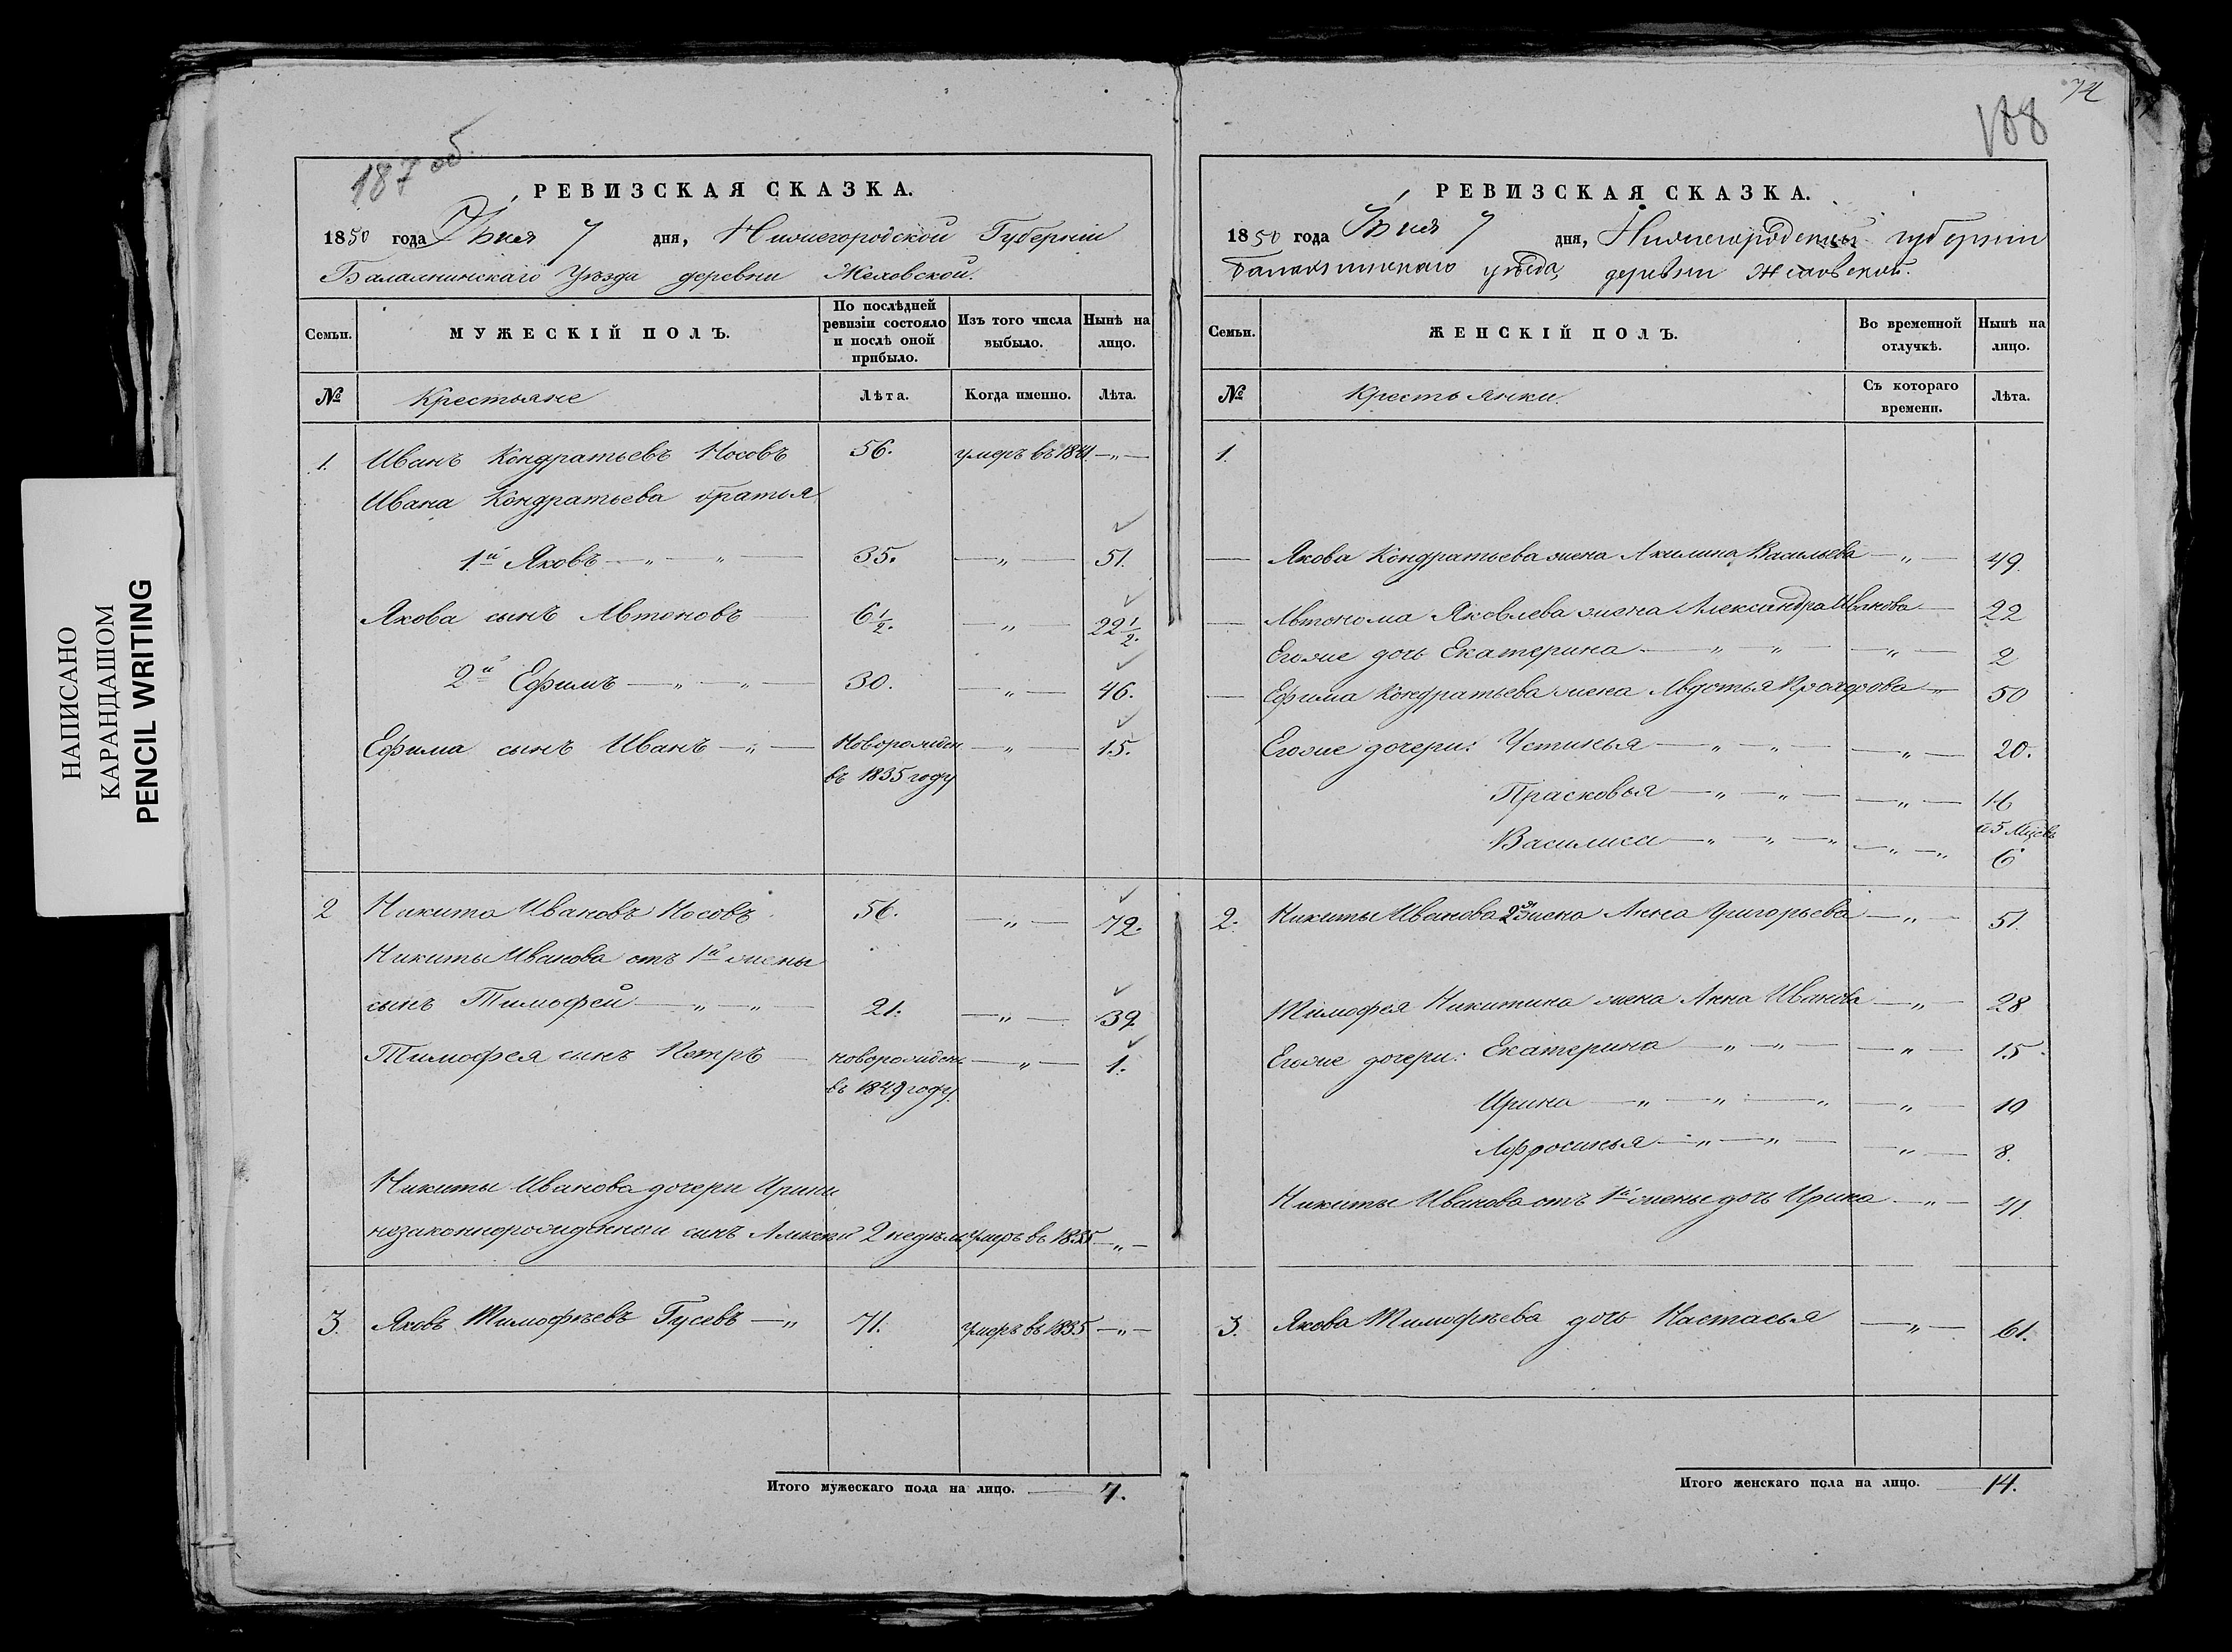 НАПИСАНО
КАРАНДАШОМ
PENCIL WRITING
187 об.
РЕВИЗСКАЯ СКАЗКА.
1850 года Юня 7 дня, Нижегородской Губернии
Балахнинскаго Уѣзда деревни
Семьи. МУЖЕСКІЙ ПОЛЪ. По послѣдней ревизіи состояло и послѣ оной прибыло. Изъ того числа выбыло. Нынѣ на лицо.
№ Крестьяне Лѣта. Когда именно. Лѣта.
1. Иванъ Кондратьевъ Носовъ 56. умеръ въ 1841 —„—
Ивана Кондратьева братья
1й Яковъ —„— „ — 35. —„— 51.
Якова сынъ Автономъ — 6 1/2. —„— 22 1/2.
2й Ефимъ —„—„— 30. —„— 46.
Ефима сынъ Иванъ —„— новорожден —„— 15.
въ 1835 году
2 Никита Ивановъ Носовъ 56. —„— 72.
Никиты Иванова отъ 1й жены
сынъ Тимофей —„—„ 21. —„— 39
Тимофея сынъ Петръ — новорожденъ —„— 1.
въ 1849 году
Никиты Иванова дочери Ирины
незаконнорожденный сынъ Алексей 2 недѣли умеръ въ 1835 —„—
3. Яковъ Тимофѣевъ Гусевъ —„ 71. умеръ въ 1835 —„—
Итого мужескаго пола на лицо. 7.
74
188
РЕВИЗСКАЯ СКАЗКА.
1850 года Юня 7 дня, Нижегородской губернии
Балахнинскаго уѣзда, деревни
Семьи. ЖЕНСКІЙ ПОЛЪ. Во временной отлучкѣ. Нынѣ на лицо.
№ Крестьянки Съ котораго времени. Лѣта.
1.
— Якова Кондратьева жена Акилина Васильева —„— 49.
— Автонома Яковлева жена Александра Иванова — 22
Егоже дочь Екатерина —„ „ —„— 2
— Ефима Кондратьева жена Авдотья Прохорова —„ 50
Егоже дочери: Устинья —„—„— —„— 20.
Прасковья —„—„— —„— 16
Василиса —„—„—„ —„—„ 6
2. Никиты Иванова 2я жена Анна Григорьева —„— 51.
Тимофея Никитина жена Анна Иванова —„— 28
Егоже дочери: Екатерина —„—„— —„— 15
Ирина —„—„—„ —„— 10
Афросинья —„—„— —„— 8.
Никиты Иванова отъ 1й жены дочь Ирина —„— 41.
3. Якова Тимофѣева дочь Настасья —„— 61.
Итого женскаго пола на лицо. 14.